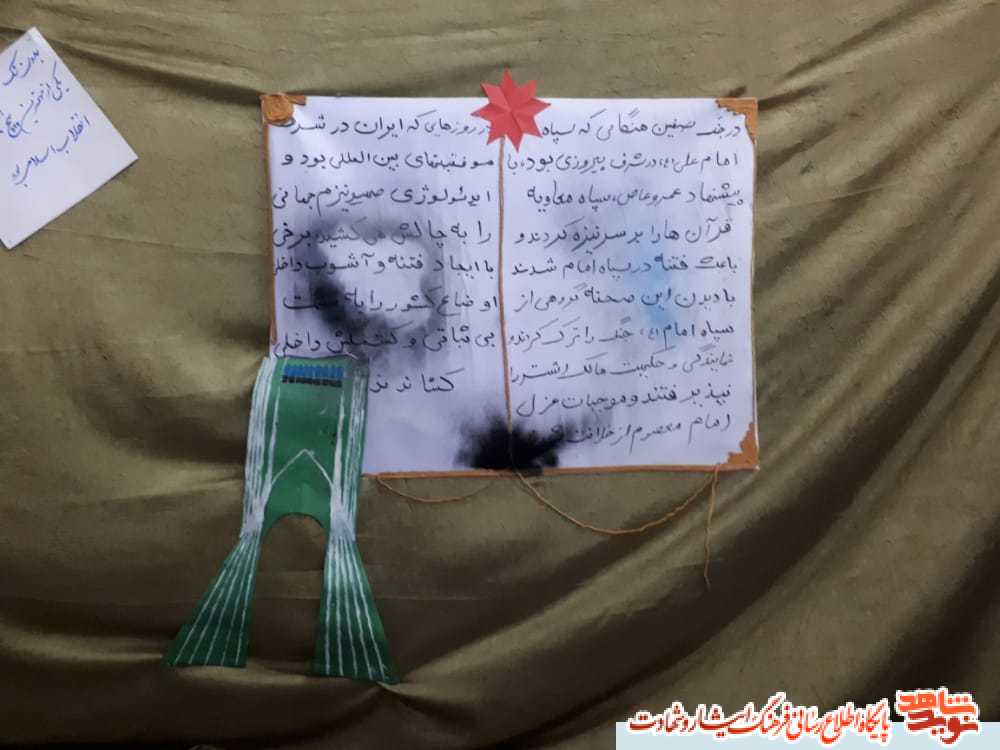 در جنگ صفین هنگامی که سپاه
امام علی (ع) در شرف پیروزی بود، با
پیشنهاد عمروعاص، سپاه معاویه
قرآن ها را بر سر نیزه کردند و
باعث فتنه در سپاه امام شدند
با دیدن این صحنه گروهی از
سپاه امام (ع)، جنگ را ترک کردند و
نمایندگی و حکمیت مالک اشتر را
نپذیرفتند و موجبات عزل
امام معصوم از خلافت
در روزهایی که ایران در شدت
موفقیتهای بین المللی بود و
ایدئولوژی صهیونیزم جهانی
را به چالش می کشید برخی
با ایجاد فتنه و آشوب داخلی
اوضاع کشور را به سمت
بی ثباتی و کشمکش داخلی
کشاندند
بدون شک
یکی از
انقلاب اسلامی بود
شاهد
نوید
پایگاه اطلاع رسانی فرهنگ ایثار و شهادت